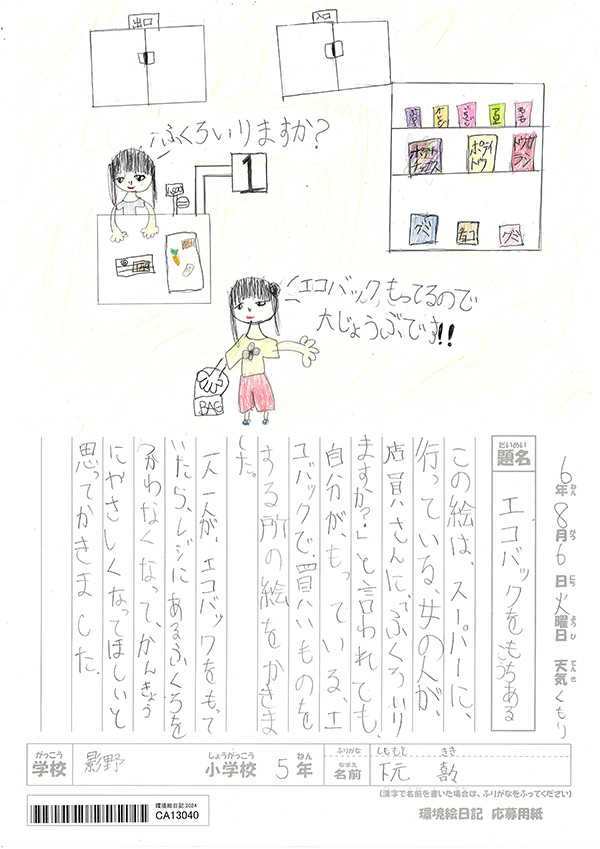 出口
入口
ふくろいりますか？
1
グミ
チョコ
グミ
エコバック、もってるので
大じょうぶです!!
BAG
6年8月6日火曜日 天気くもり
ねん がつ にち ようび てんき
だいめい
題名
エコバックをもちあるこう
この絵は、スーパーに、
行っている、女の人が、
店員さんに、「ふくろいり
ますか？」と言われても、
自分が、もっている、エ
コバックで、買いものを
する所の絵をかきま
した。
一人一人が、エコバックをもって
いたら、レジにあるふくろを
つかわなくなって、かんきょう
にやさしくなってほしいと
思ってかきました。
がっこう しょうがっこう ねん ふりがな しももと さき
学校 影野 小学校 5年
なまえ
名前 下元
(漢字で名前を書いた場合は、ふりがなをふってください)
環境絵日記2024
CA13040
環境絵日記 応募用紙